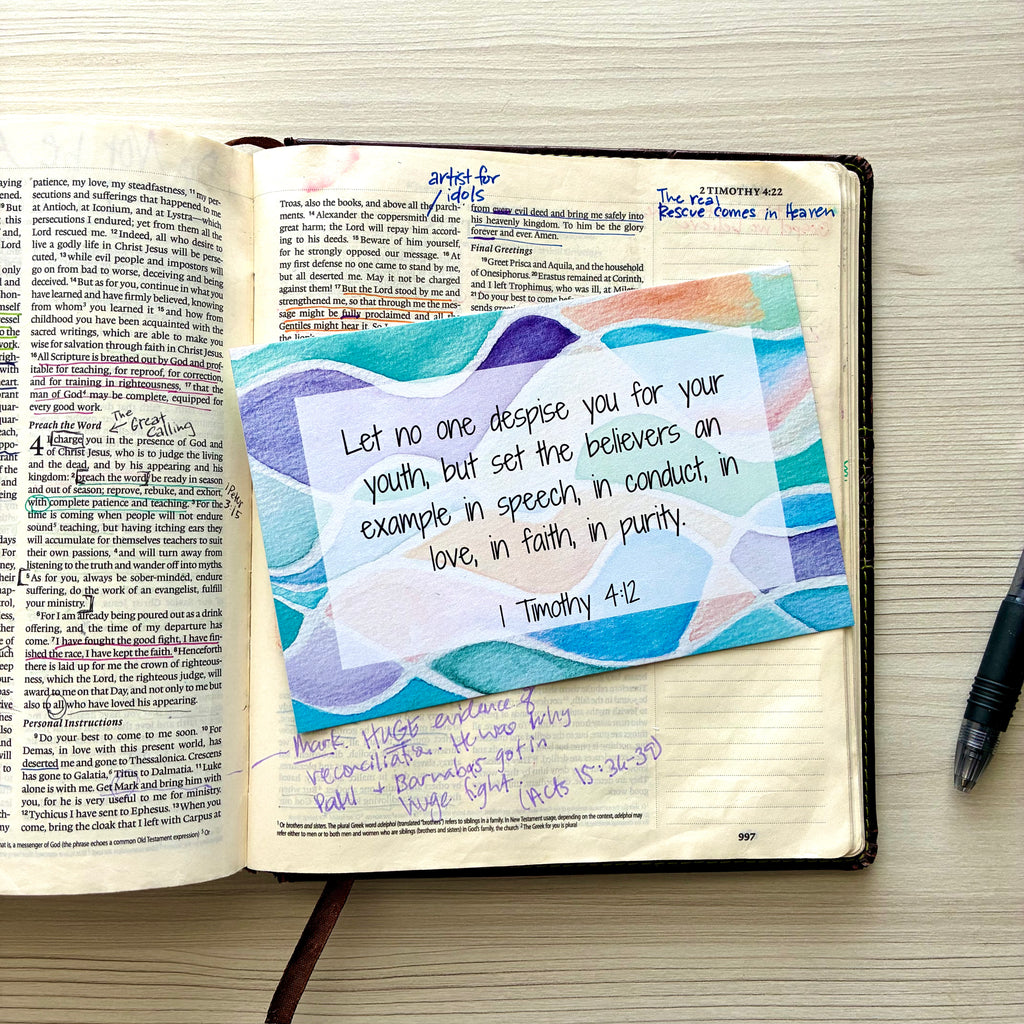 patience, my love, my steadfastness, ¹¹ my per-
secutions and sufferings that happened to me
at Antioch, at Iconium, and at Lystra—which
persecutions I endured; yet from them all the
Lord rescued me. ¹² Indeed, all who desire to
live a godly life in Christ Jesus will be perse-
cuted, ¹³ while evil people and impostors will
go on from bad to worse, deceiving and being
deceived. ¹⁴ But as for you, continue in what you
have learned and have firmly believed, knowing
from whom³ you learned it ¹⁵ and how from
childhood you have been acquainted with the
sacred writings, which are able to make you
wise for salvation through faith in Christ Jesus.
¹⁶ All Scripture is breathed out by God and prof-
itable for teaching, for reproof, for correction,
and for training in righteousness, ¹⁷ that the
man of God⁴ may be complete, equipped for
every good work.
Preach the Word
The
Great
Calling
4 I charge you in the presence of God and
of Christ Jesus, who is to judge the living
and the dead, and by his appearing and his
kingdom: ² preach the word; be ready in season
and out of season; reprove, rebuke, and exhort,
with complete patience and teaching. ³ For the
time is coming when people will not endure
sound⁵ teaching, but having itching ears they
will accumulate for themselves teachers to suit
their own passions, ⁴ and will turn away from
listening to the truth and wander off into myths.
⁵ As for you, always be sober-minded, endure
suffering, do the work of an evangelist, fulfill
your ministry.
⁶ For I am already being poured out as a drink
offering, and the time of my departure has
come. ⁷ I have fought the good fight, I have fin-
ished the race, I have kept the faith. ⁸ Henceforth
there is laid up for me the crown of righteous-
ness, which the Lord, the righteous judge, will
award to me on that Day, and not only to me but
also to all who have loved his appearing.
Personal Instructions
⁹ Do your best to come to me soon. ¹⁰ For
Demas, in love with this present world, has
deserted me and gone to Thessalonica. Crescens
has gone to Galatia,⁶ Titus to Dalmatia. ¹¹ Luke
alone is with me. Get Mark and bring him with
you, for he is very useful to me for ministry.
¹² Tychicus I have sent to Ephesus. ¹³ When you
come, bring the cloak that I left with Carpus at
that is, a messenger of God (the phrase echoes a common Old Testament expression) ⁵ Or
artist for
idols
Troas, also the books, and above all the parch-
ments. ¹⁴ Alexander the coppersmith did me
great harm; the Lord will repay him according
to his deeds. ¹⁵ Beware of him yourself,
for he strongly opposed our message. ¹⁶ At
my first defense no one came to stand by me,
but all deserted me. May it not be charged
against them! ¹⁷ But the Lord stood by me and
strengthened me, so that through me the mes-
sage might be fully proclaimed and all the
Gentiles might hear it. So I
the lion's
from every evil deed and bring me safely into
his heavenly kingdom. To him be the glory
forever and ever. Amen.
Final Greetings
¹⁹ Greet Prisca and Aquila, and the household
of Onesiphorus. ²⁰ Erastus remained at Corinth,
and I left Trophimus, who was ill, at
²¹ Do your best to come
sends
2 TIMOTHY 4:22
The real
Rescue comes in Heaven
Let no one despise you for your
youth, but set the believers an
example in speech, in conduct, in
love, in faith, in purity.
1 Timothy 4:12
Mark. HUGE evidence of
reconciliation. He was why
Paul + Barnabas got in
huge fight. (Acts 15:36-39)
¹ Or brothers and sisters. The plural Greek word adelphoi (translated "brothers") refers to siblings in a family. In New Testament usage, depending on the context, adelphoi may
refer either to men or to both men and women who are siblings (brothers and sisters) in God's family, the church ² The Greek for you is plural
997